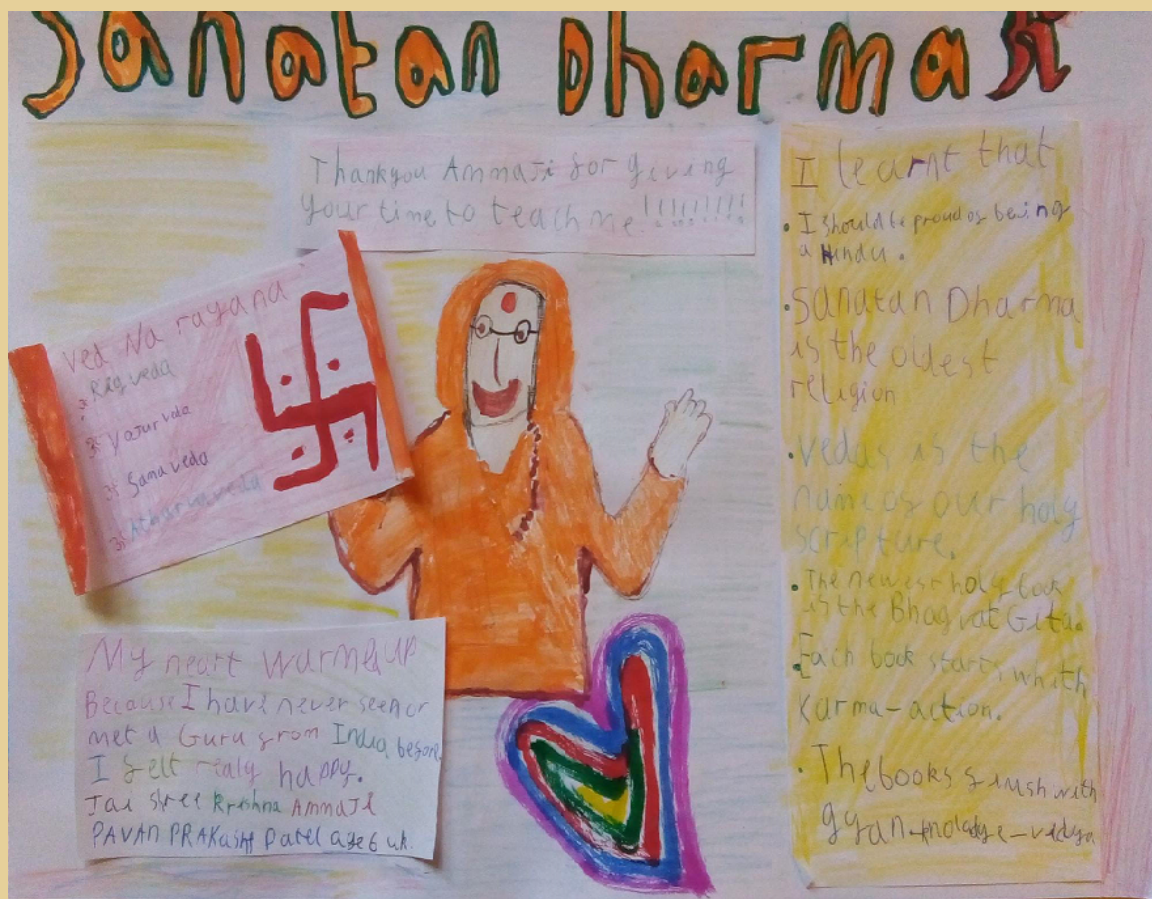 Sanatan Dharma ॐ
Thankyou AmmaJi for giving
your time to teach me!!!!!!!!!
Ved Na rayana
ॐ Rigveda
ॐ Yajurveda
ॐ Samaveda
ॐ Atharvaveda
My heart warmed up
Because I have never seen or
met a Guru from India before
I felt realy happy.
Jai Shree Krishna AmmaJi
PAVAN PRAKash Patel age 6 uk.
I learnt that
• I should be proud of being
a Hindu.
• Sanatan Dharma
is the oldest
religion
• Vedas is the
name of our holy
scripture.
• The newest holy book
is the Bhagvat Gita.
• Each book starts whith
Karma-action.
• The books finish with
gyan - - vidya